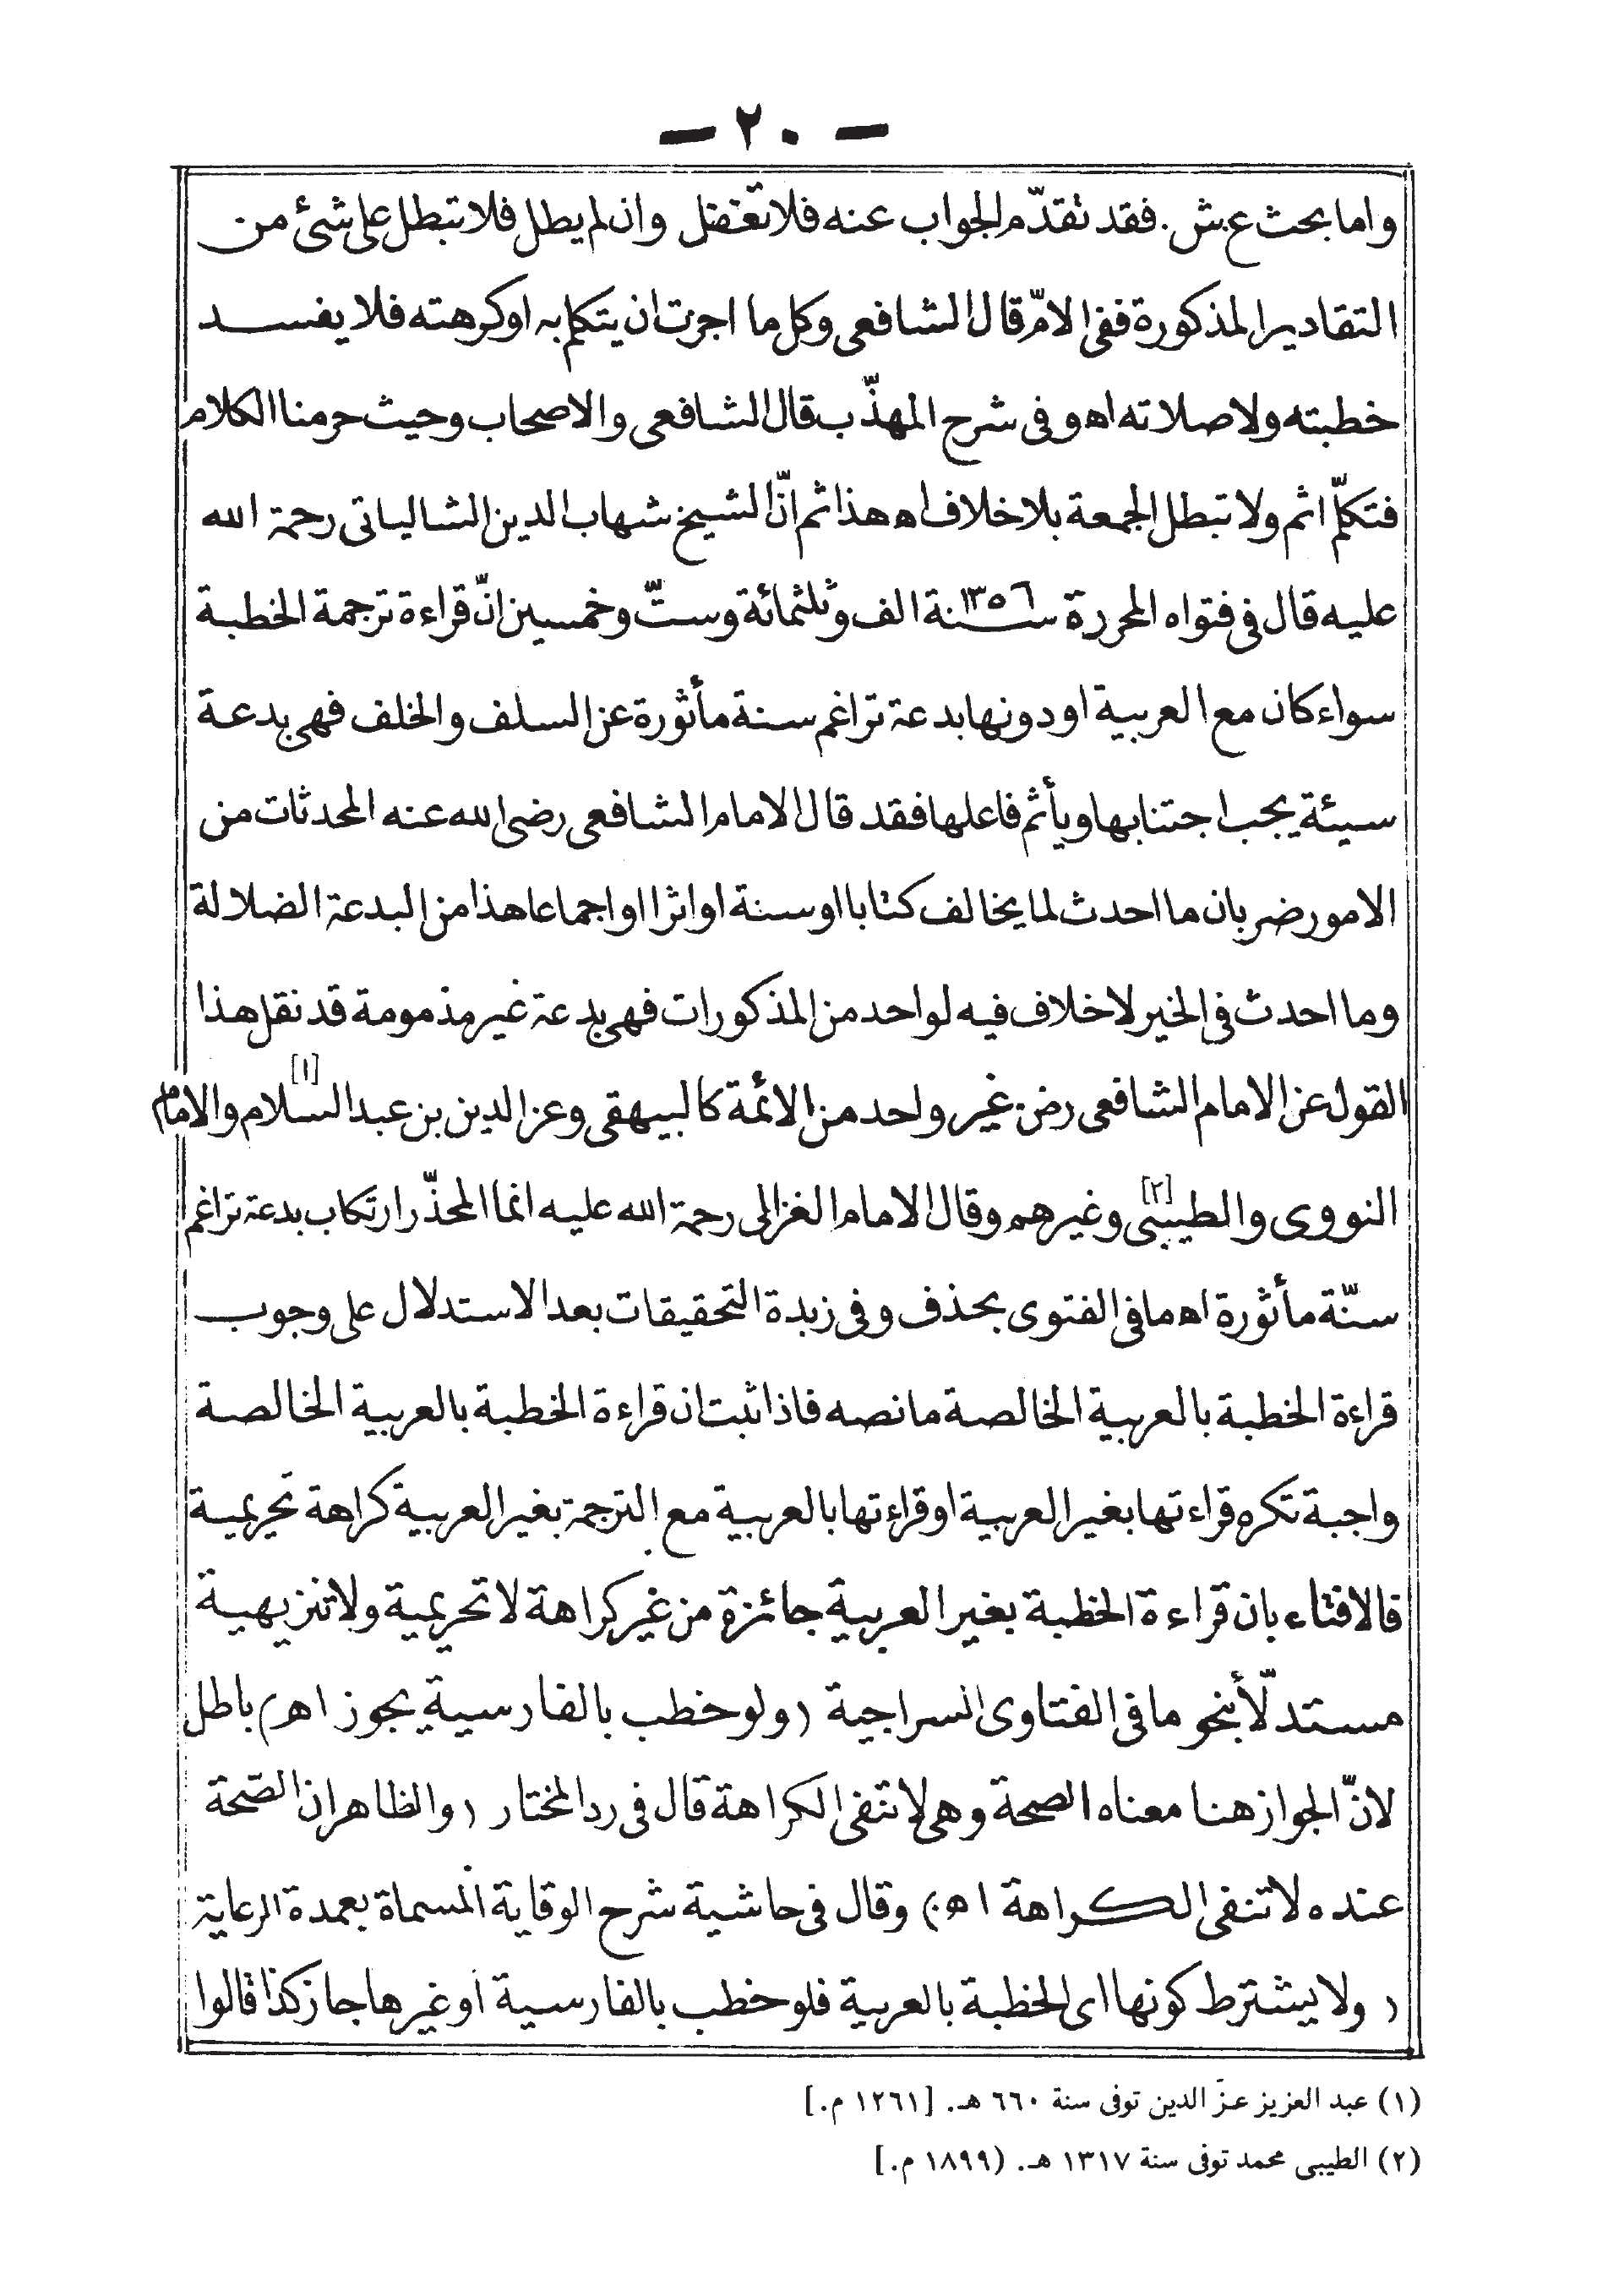 — ٢٠ —
واما بحث ع ش. فقد تقدّم الجواب عنه فلا تغفل وان لم يطل فلا تبطل على شئ من
التقادير المذكورة ففى الامّ قال الشافعى وكل ما اجزت ان يتكلم به او كرهته فلا يفسد
خطبته ولا صلاته اه وفى شرح المهذّب قال الشافعى والاصحاب وحيث حرمنا الكلام
فتكلّم اثم ولا تبطل الجمعة بلا خلاف اه هذا ثم انّ الشيخ شهاب الدين الشالياتى رحمة الله
عليه قال فى فتواه المحررة سنة ١٣٥٦ الف وثلثمائة وستّ وخمسين انّ قراءة ترجمة الخطبة
سواء كان مع العربية او دونها بدعة تراغم سنة مأثورة عن السلف والخلف فهى بدعة
سيئة يجب اجتنابها ويأثم فاعلها فقد قال الامام الشافعى رضى الله عنه المحدثات من
الامور ضربان ما احدث لما يخالف كتابا او سنة او اثرا او اجماعا هذا من البدعة الضلالة
وما احدث فى الخير لا خلاف فيه لواحد من المذكورات فهى بدعة غير مذمومة قد نقل هذا
القول عن الامام الشافعى رض غير واحد من الائمة كالبيهقى وعز الدين بن عبد السلام [١] والامام
النووى والطيبى [٢] وغيرهم وقال الامام الغزالى رحمة الله عليه انما المحذّر ارتكاب بدعة تراغم
سنّة مأثورة اه ما فى الفتوى بحذف وفى زبدة التحقيقات بعد الاستدلال على وجوب
قراءة الخطبة بالعربية الخالصة ما نصه فاذا ثبت ان قراءة الخطبة بالعربية الخالصة
واجبة تكره قراءتها بغير العربية او قراءتها بالعربية مع الترجمة بغير العربية كراهة تحريمية
فالافتاء بان قراءة الخطبة بغير العربية جائزة من غير كراهة لا تحريمية ولا تنزيهية
مستدلّا بنحو ما فى الفتاوى السراجية (ولو خطب بالفارسية يجوز اه) باطل
لانّ الجواز هنا معناه الصحة وهى لا تنفى الكراهة قال فى رد المختار (والظاهر ان الصّحة
عنده لا تنفى الكراهة اه.) وقال فى حاشية شرح الوقاية المسماة بعمدة الرعاية
(ولا يشترط كونها اى الخطبة بالعربية فلو خطب بالفارسية او غيرها جاز كذا قالوا
(١) عبد العزيز عزّ الدين توفى سنة ٦٦٠ هـ. [١٢٦١ م.]
(٢) الطيبى محمد توفى سنة ١٣١٧ هـ. (١٨٩٩ م.]